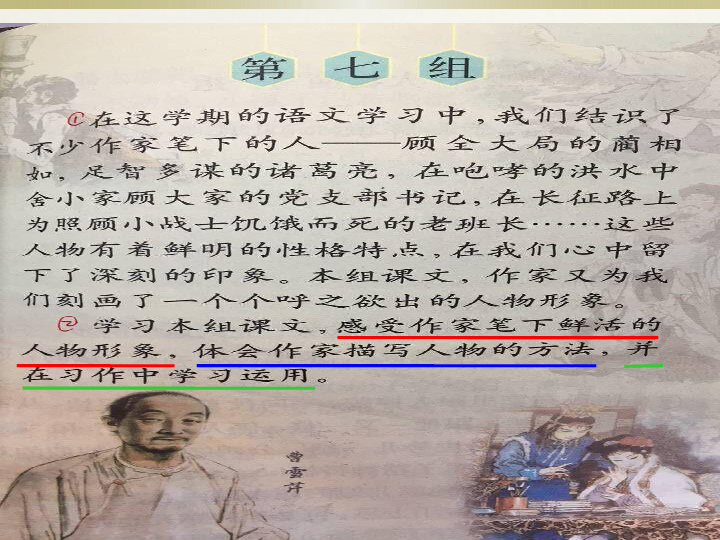 第七组
①在这学期的语文学习中，我们结识了
不少作家笔下的人——顾全大局的蔺相
如，足智多谋的诸葛亮，在咆哮的洪水中
舍小家顾大家的党支部书记，在长征路上
为照顾小战士饥饿而死的老班长……这些
人物有着鲜明的性格特点，在我们心中留
下了深刻的印象。本组课文，作家又为我
们刻画了一个个呼之欲出的人物形象。
②学习本组课文，感受作家笔下鲜活的
人物形象，体会作家描写人物的方法，并
在习作中学习运用。
曹雪芹